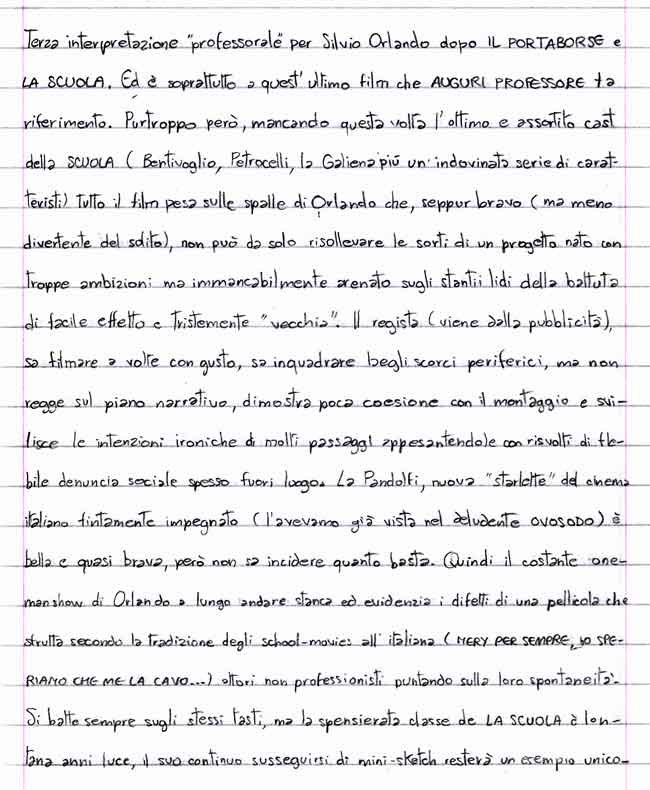 Terza interpretazione "professorale" per Silvio Orlando dopo IL PORTABORSE e
LA SCUOLA. Ed è soprattutto a quest'ultimo film che AUGURI PROFESSORE fa
riferimento. Purtroppo però, mancando questa volta l'ottimo e assortito cast
della SCUOLA (Bentivoglio, Petrocelli, la Galiena più un'indovinata serie di carat-
teristi) Tutto il film pesa sulle spalle di Orlando che, seppur bravo (ma meno
divertente del solito), non può da solo risollevare le sorti di un progetto nato con
troppe ambizioni ma immancabilmente arenato sugli stantii lidi della battuta
di facile effetto e tristemente "vecchia". Il regista (viene dalla pubblicità),
sa filmare a volte con gusto, sa inquadrare begli scorci periferici, ma non
regge sul piano narrativo, dimostra poca coesione con il montaggio e svi-
lisce le intenzioni ironiche di molti passaggi appesantendole con risvolti di fle-
bile denuncia sociale spesso fuori luogo. La Pandolfi, nuova "starlette" del cinema
italiano fintamente impegnato (l'avevamo già vista nel deludente OVOSODO) è
bella e quasi brava, però non sa incidere quanto basta. Quindi il costante one-
manshow di Orlando a lungo andare stanca ed evidenzia i difetti di una pellicola che
sfrutta secondo la tradizione degli school-movies all'italiana (MERY PER SEMPRE, IO SPE-
RIAMO CHE ME LA CAVO...) attori non professionisti puntando sulla loro spontaneità.
Si batte sempre sugli stessi tasti, ma la spensierata classe de LA SCUOLA è lon-
tana anni luce, il suo continuo susseguirsi di mini-sketch resterà un esempio unico.